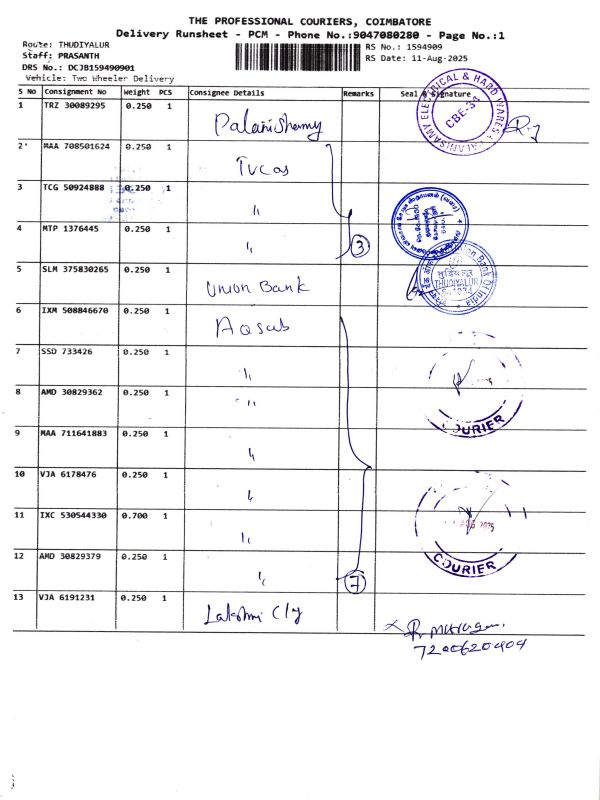 THE PROFESSIONAL COURIERS, COIMBATORE
Delivery Runsheet - PCM - Phone No.:9047080280 - Page No.:1
Route: THUDIYALUR
Staff: PRASANTH
DRS No.: DCJB159490901
Vehicle: Two Wheeler Delivery
RS No.: 1594909
RS Date: 11-Aug-2025
S No Consignment No Weight PCS Consignee Details Remarks Seal & Signature
1 TRZ 30089295 0.250 1 Palanishamy
PALANISAMY ELECTRICAL & HARDWARES
CBE-34
2 MAA 708501624 0.250 1 Tvcas
3 TCG 50924888 0.250 1 "
4 MTP 1376445 0.250 1 " 3
5 SLM 375830265 0.250 1 Union Bank
Union Bank Of India
THUDIYALUR
6 IXM 508846670 0.250 1 Aqsub
7 SSD 733426 0.250 1 "
8 AMD 30829362 0.250 1 "
COURIER
9 MAA 711641883 0.250 1 "
10 VJA 6178476 0.250 1 "
11 IXC 530544330 0.700 1 "
2025
12 AMD 30829379 0.250 1 " 7
COURIER
13 VJA 6191231 0.250 1 Lakshmi Clg